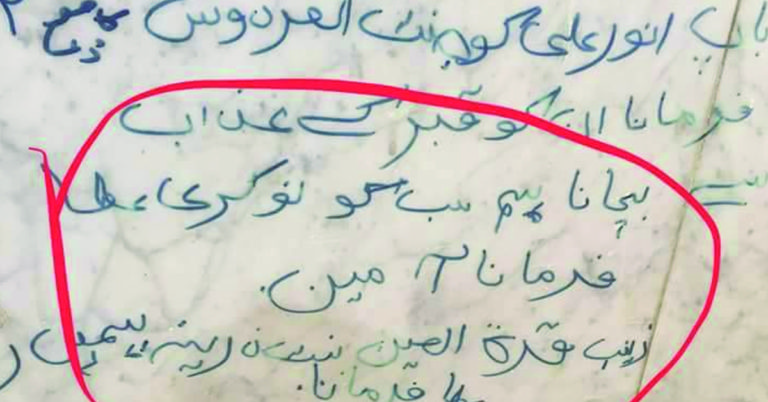 باپ انور علی کو جنت الفردوس
فرمانا ان کو قبر کے عذاب
سے بچانا ہم سب کو نوکری عطا
فرمانا آمین
زینب قرة العین
فرمانا